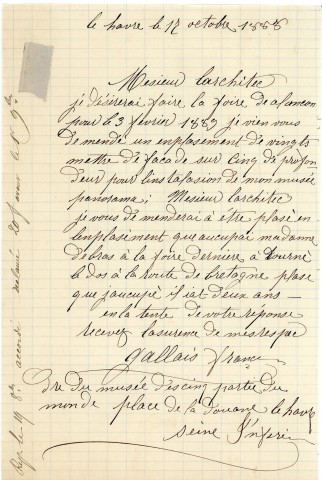 le havre le 17 octobre 1888
Mesieur larchitec
je désérerai faire la foire de alancon
pour le 3 février 1889 je vien vous
demendé un enplasement de vingts
mettre de facade sur cinq de profon
deur pour linstalasion de mon musée
panorama; Mesieur larchitec
je vous demenderai a etre plasé en
lenplasement que aucupai madame
debras a la foire derniere a tourné
le dos a la route de bretagne place
que jaucupé il iat deux ans —
en la tente de votre réponse
recevez lasurence de mes respec
Gallais franc
dre du musée des cinq partie du
monde place de la Douane le havre
seine Infer
Rep. le 19 8bre accordé